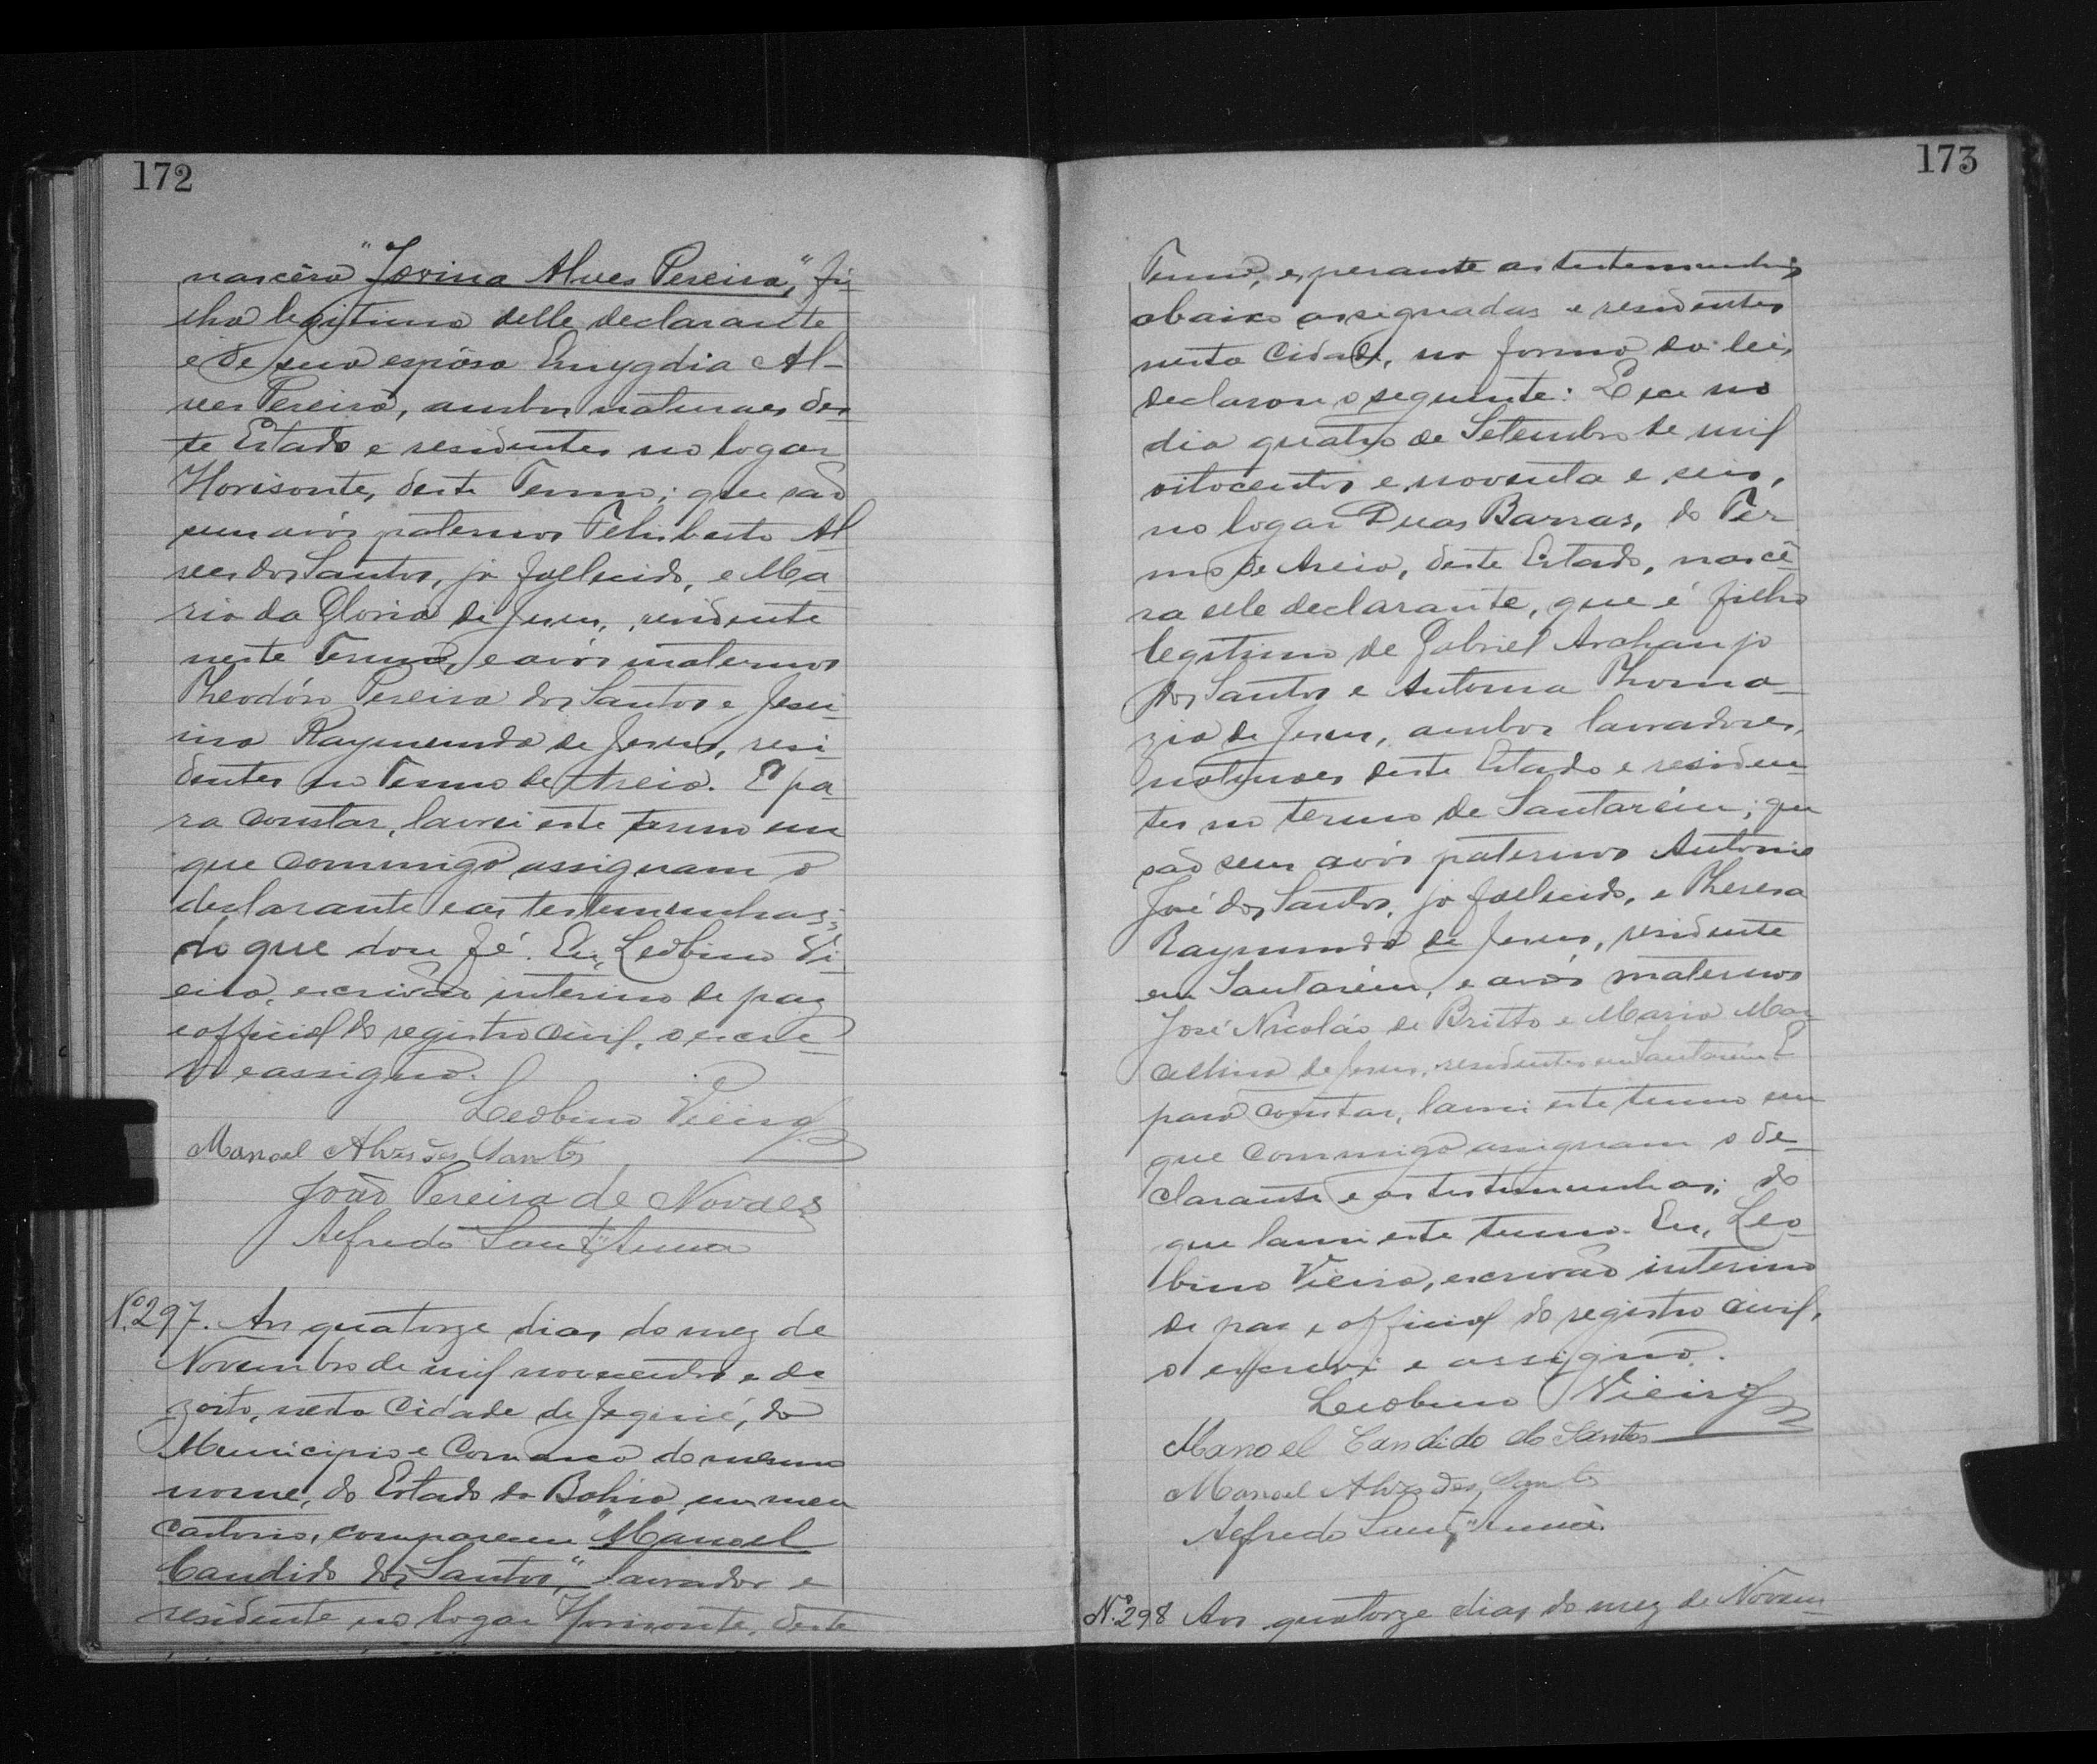 172
nascêra "Jovina Alves Pereira," fi-
lha legitima delle declarante
e de sua espôsa Emygdia Al-
ves Pereira, ambos naturaes des-
te Estado e residentes no logar
Horisonte, deste Termo; que são
seus avós paternos Felisberto Al-
ves dos Santos, já fallecido, e Ma-
ria da Gloria de Jesus, residente
neste Termo, e avós maternos
Theodóro Pereira dos Santos e Jesu-
ina Raymunda de Jesus, resi-
dentes no Termo de Areia. E pa-
ra constar, lavrei este termo em
que commigo assignam o
declarante e as testemunhas;
do que dou fé. Eu, Leobino Vi-
eira, escrivão interino de paz
e official do registro civil, o escre-
vi e assigno.
Leobino Vieira
Manoel Alves dos Santos
João Pereira de Novaes
Alfredo Sant'Anna
Nº 297. Aos quatorze dias do mez de
Novembro de mil novecentos e de-
zoito, nesta Cidade de Jequié, do
Municipio e Comarca do mesmo
nome, do Estado da Bahia, em meu
cartorio, compareceu "Manoel
Candido dos Santos," lavrador e
residente no logar Horisonte, deste
173
Termo, e, perante as testemunhas
abaixo assignadas e residentes
nesta Cidade, na forma da lei,
declarou o seguinte: Que no
dia quatro de Setembro de mil
oitocentos e noventa e seis,
no logar Duas Barras, do Ter-
mo de Areia, deste Estado, nascê-
ra elle declarante, que é filho
legitimo de Gabriel Archanjo
dos Santos e Antonia Thoma-
zia de Jesus, ambos lavradores,
naturaes deste Estado e residen-
tes no termo de Santarém; que
são seus avós paternos Antonio
José dos Santos, já fallecido, e Theresa
Raymunda de Jesus, residente
em Santarém, e avós maternos
José Nicoláo de Britto e Maria Mar-
cellina de Jesus, residentes em Santarém. E
para constar, lavrei este termo em
que commigo assignam o de-
clarante e as testemunhas; do
que lavrei este termo. Eu, Leo-
bino Vieira, escrivão interino
de paz e official do registro civil,
o escrevi e assigno.
Leobino Vieira
Manoel Candido do Santos
Manoel Alves dos Santos
Alfredo Sant'Anna
Nº 298 Aos quatorze dias do mez de Novem-